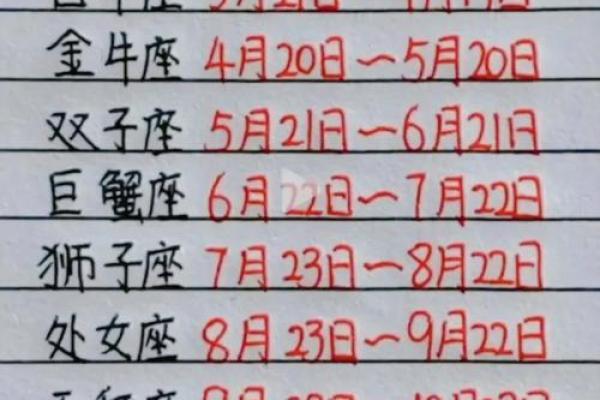 金牛座 4月20日～5月20日
双子座 5月21日～6月21日
巨蟹座 6月22日～7月22日
狮子座 7月23日～8月22日
处女座 8月23日～9月22日